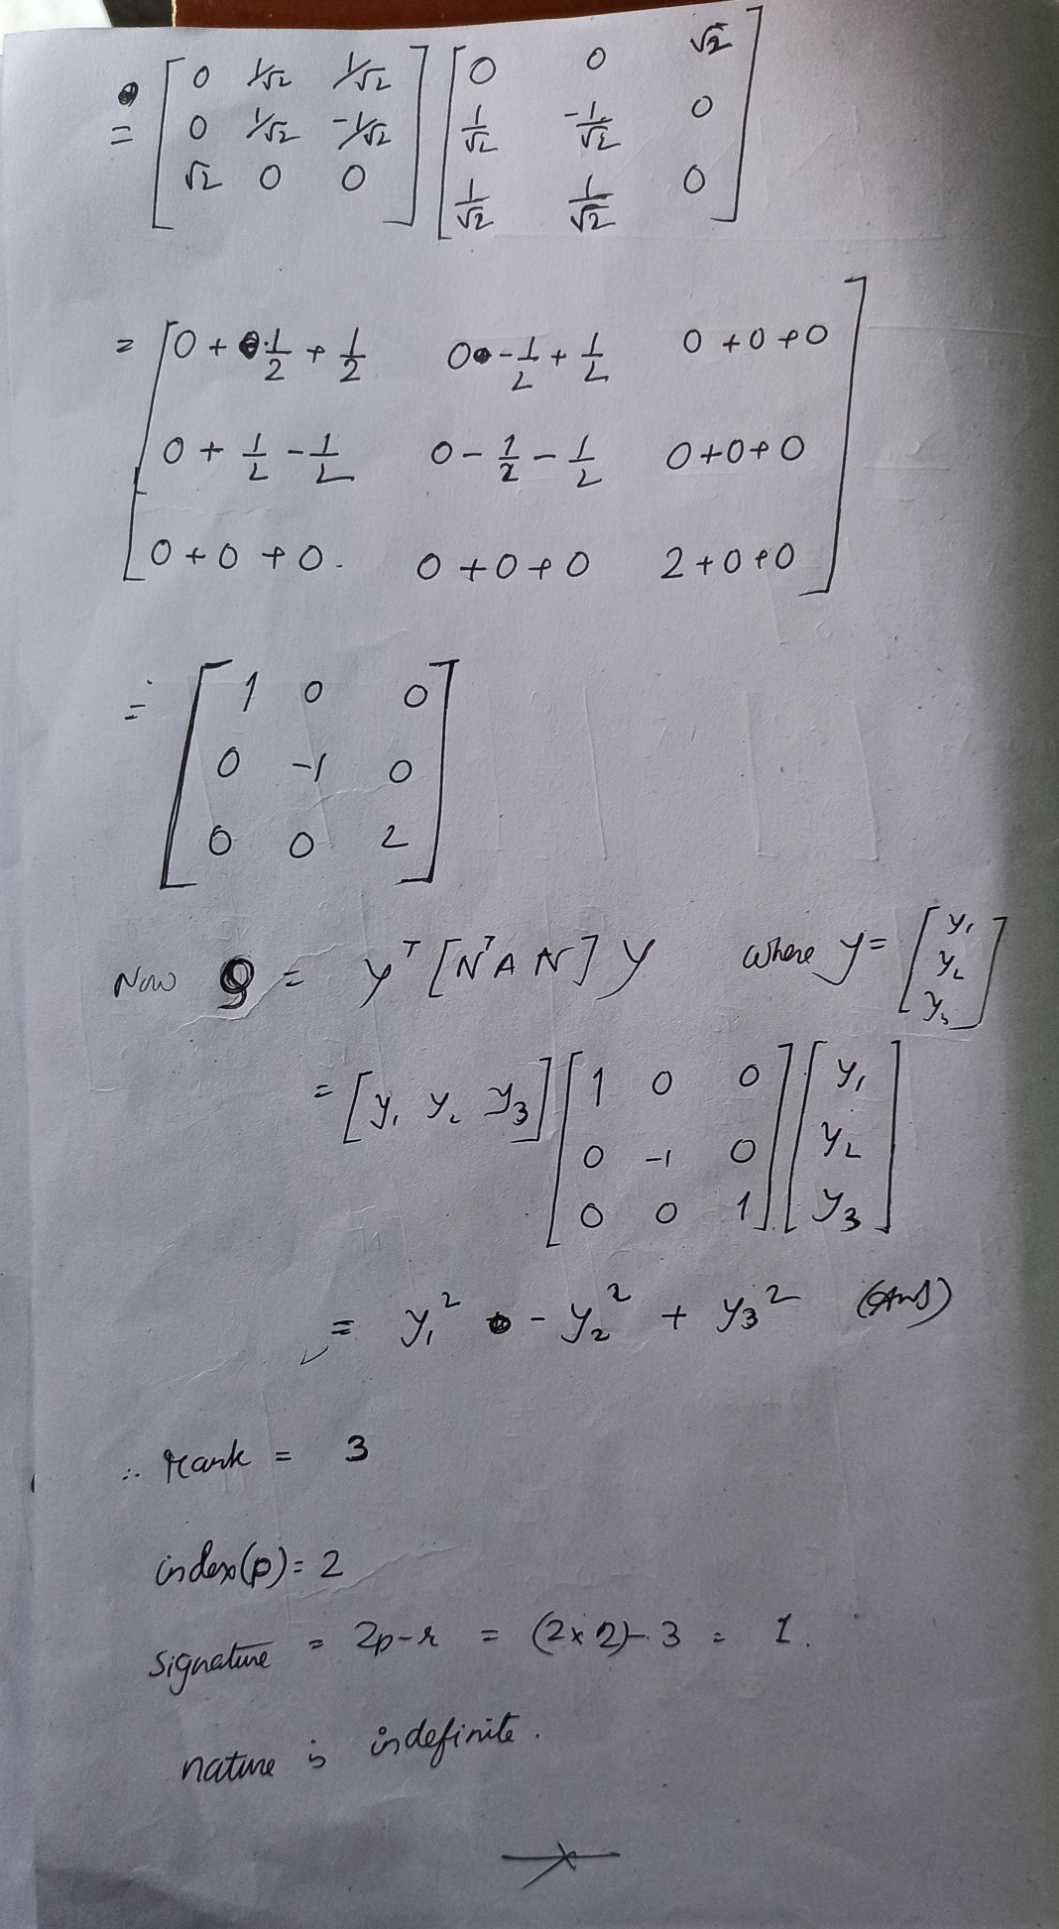 = [ 0 1/√2 1/√2 ] [ 0 0 √2 ]
[ 0 1/√2 -1/√2 ] [ 1/√2 -1/√2 0 ]
[ √2 0 0 ] [ 1/√2 1/√2 0 ]
= [ 0 + 1/2 + 1/2 0 - 1/2 + 1/2 0 + 0 + 0 ]
[ 0 + 1/2 - 1/2 0 - 1/2 - 1/2 0 + 0 + 0 ]
[ 0 + 0 + 0. 0 + 0 + 0 2 + 0 + 0 ]
= [ 1 0 0 ]
[ 0 -1 0 ]
[ 0 0 2 ]
Now Q = y^T [N^T A N] y where y = [ y₁ y₂ y₃ ]
= [y₁ y₂ y₃] [ 1 0 0 ] [ y₁ ]
[ 0 -1 0 ] [ y₂ ]
[ 0 0 1 ] [ y₃ ]
= y₁² - y₂² + y₃² (Ans)
∴ rank = 3
index(p) = 2
signature = 2p-r = (2×2)-3 = 1.
nature is indefinite.